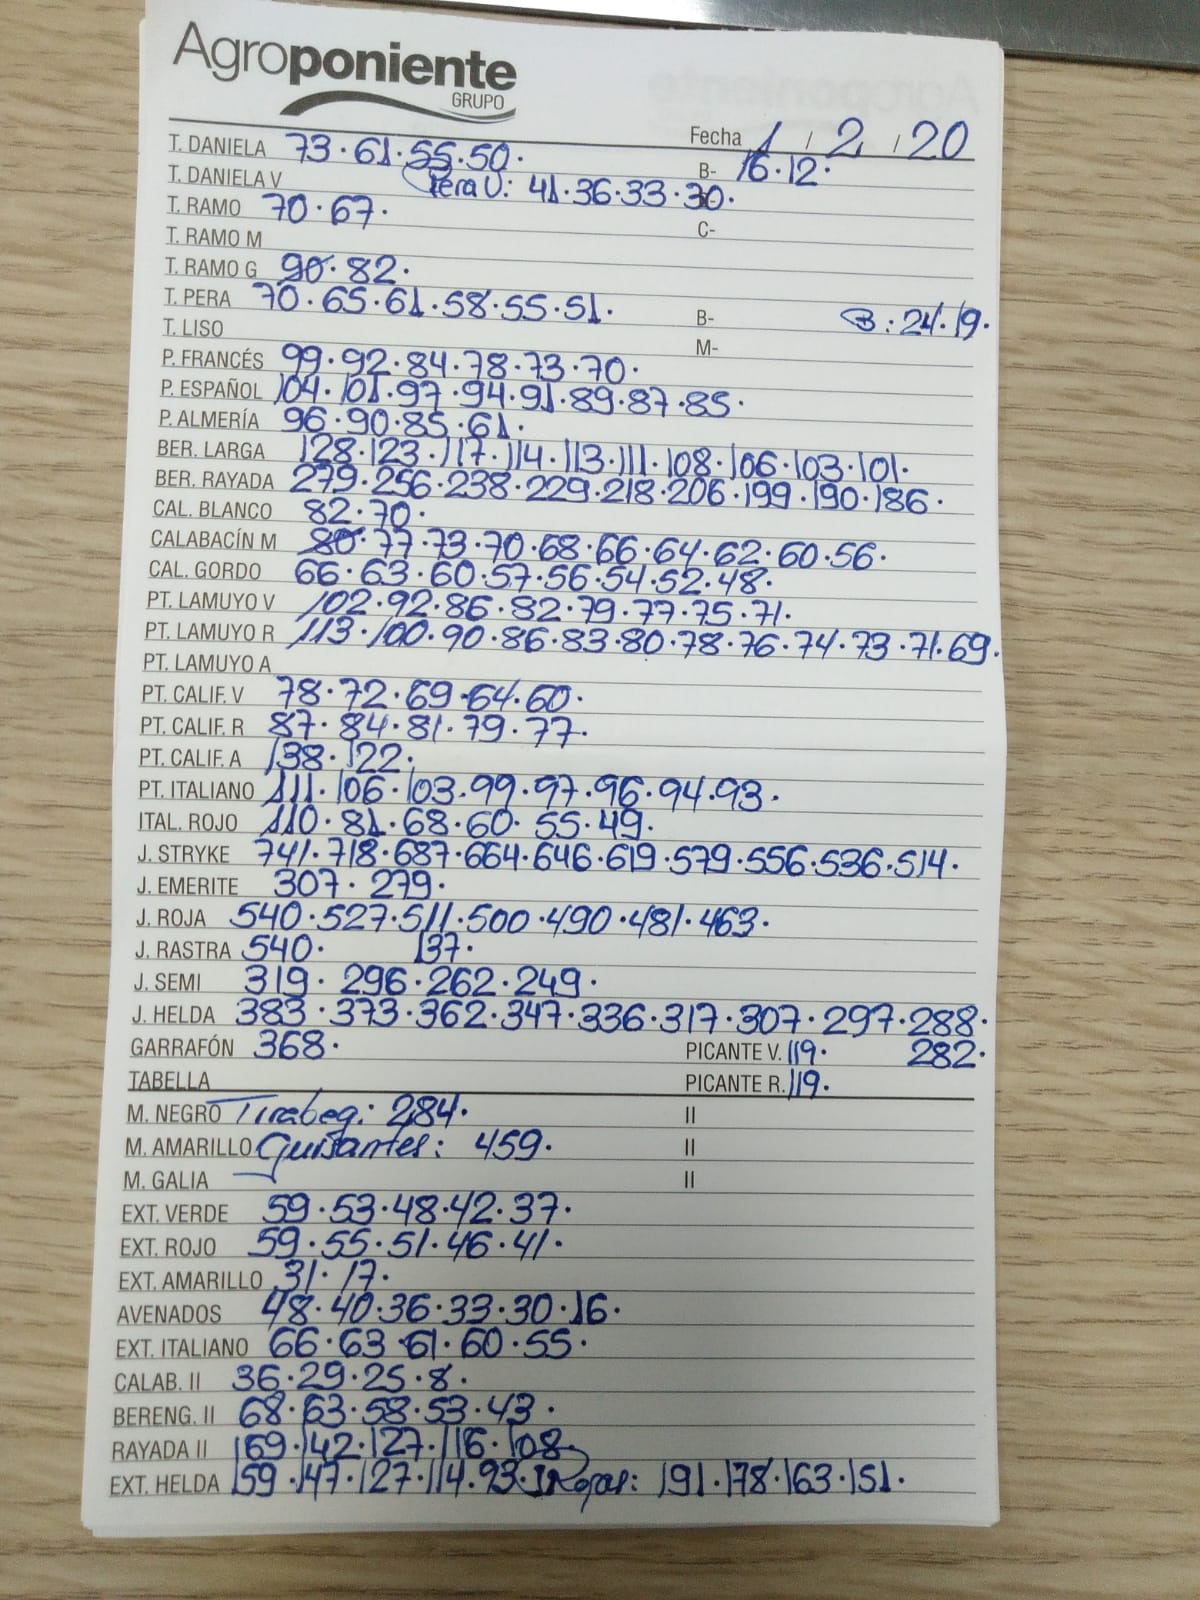 Agroponiente
GRUPO
Fecha 1 / 2 / 20
T. DANIELA 73·61·55·50· B- 16·12·
T. DANIELA V Pera V: 41·36·33·30·
T. RAMO 70·67· C-
T. RAMO M
T. RAMO G 90·82·
T. PERA 70·65·61·58·55·51· B- B: 24·19·
T. LISO M-
P. FRANCÉS 99·92·84·78·73·70·
P. ESPAÑOL 104·101·97·94·91·89·87·85·
P. ALMERÍA 96·90·85·61·
BER. LARGA 128·123·117·114·113·111·108·106·103·101·
BER. RAYADA 279·256·238·229·218·206·199·190·186·
CAL. BLANCO 82·70·
CALABACÍN M 80·77·73·70·68·66·64·62·60·56·
CAL. GORDO 66·63·60·57·56·54·52·48·
PT. LAMUYO V 102·92·86·82·79·77·75·71·
PT. LAMUYO R 113·100·90·86·83·80·78·76·74·73·71·69·
PT. LAMUYO A
PT. CALIF. V 78·72·69·64·60·
PT. CALIF. R 87·84·81·79·77·
PT. CALIF. A 138·122·
PT. ITALIANO 111·106·103·99·97·96·94·93·
ITAL. ROJO 110·81·68·60·55·49·
J. STRYKE 741·718·687·664·646·619·579·556·536·514·
J. EMERITE 307·279·
J. ROJA 540·527·511·500·490·481·463·
J. RASTRA 540· 137·
J. SEMI 319·296·262·249·
J. HELDA 383·373·362·347·336·317·307·297·288·
GARRAFÓN 368· PICANTE V. 119· 282·
TABELLA PICANTE R. 119·
M. NEGRO Tirabeq: 284· II
M. AMARILLO Guisantes: 459· II
M. GALIA II
EXT. VERDE 59·53·48·42·37·
EXT. ROJO 59·55·51·46·41·
EXT. AMARILLO 31·17·
AVENADOS 48·40·36·33·30·16·
EXT. ITALIANO 66·63·61·60·55·
CALAB. II 36·29·25·8·
BERENG. II 68·63·58·53·43·
RAYADA II 169·142·127·116·108
EXT. HELDA 159·147·127·114·93· Rojas: 191·178·163·151·